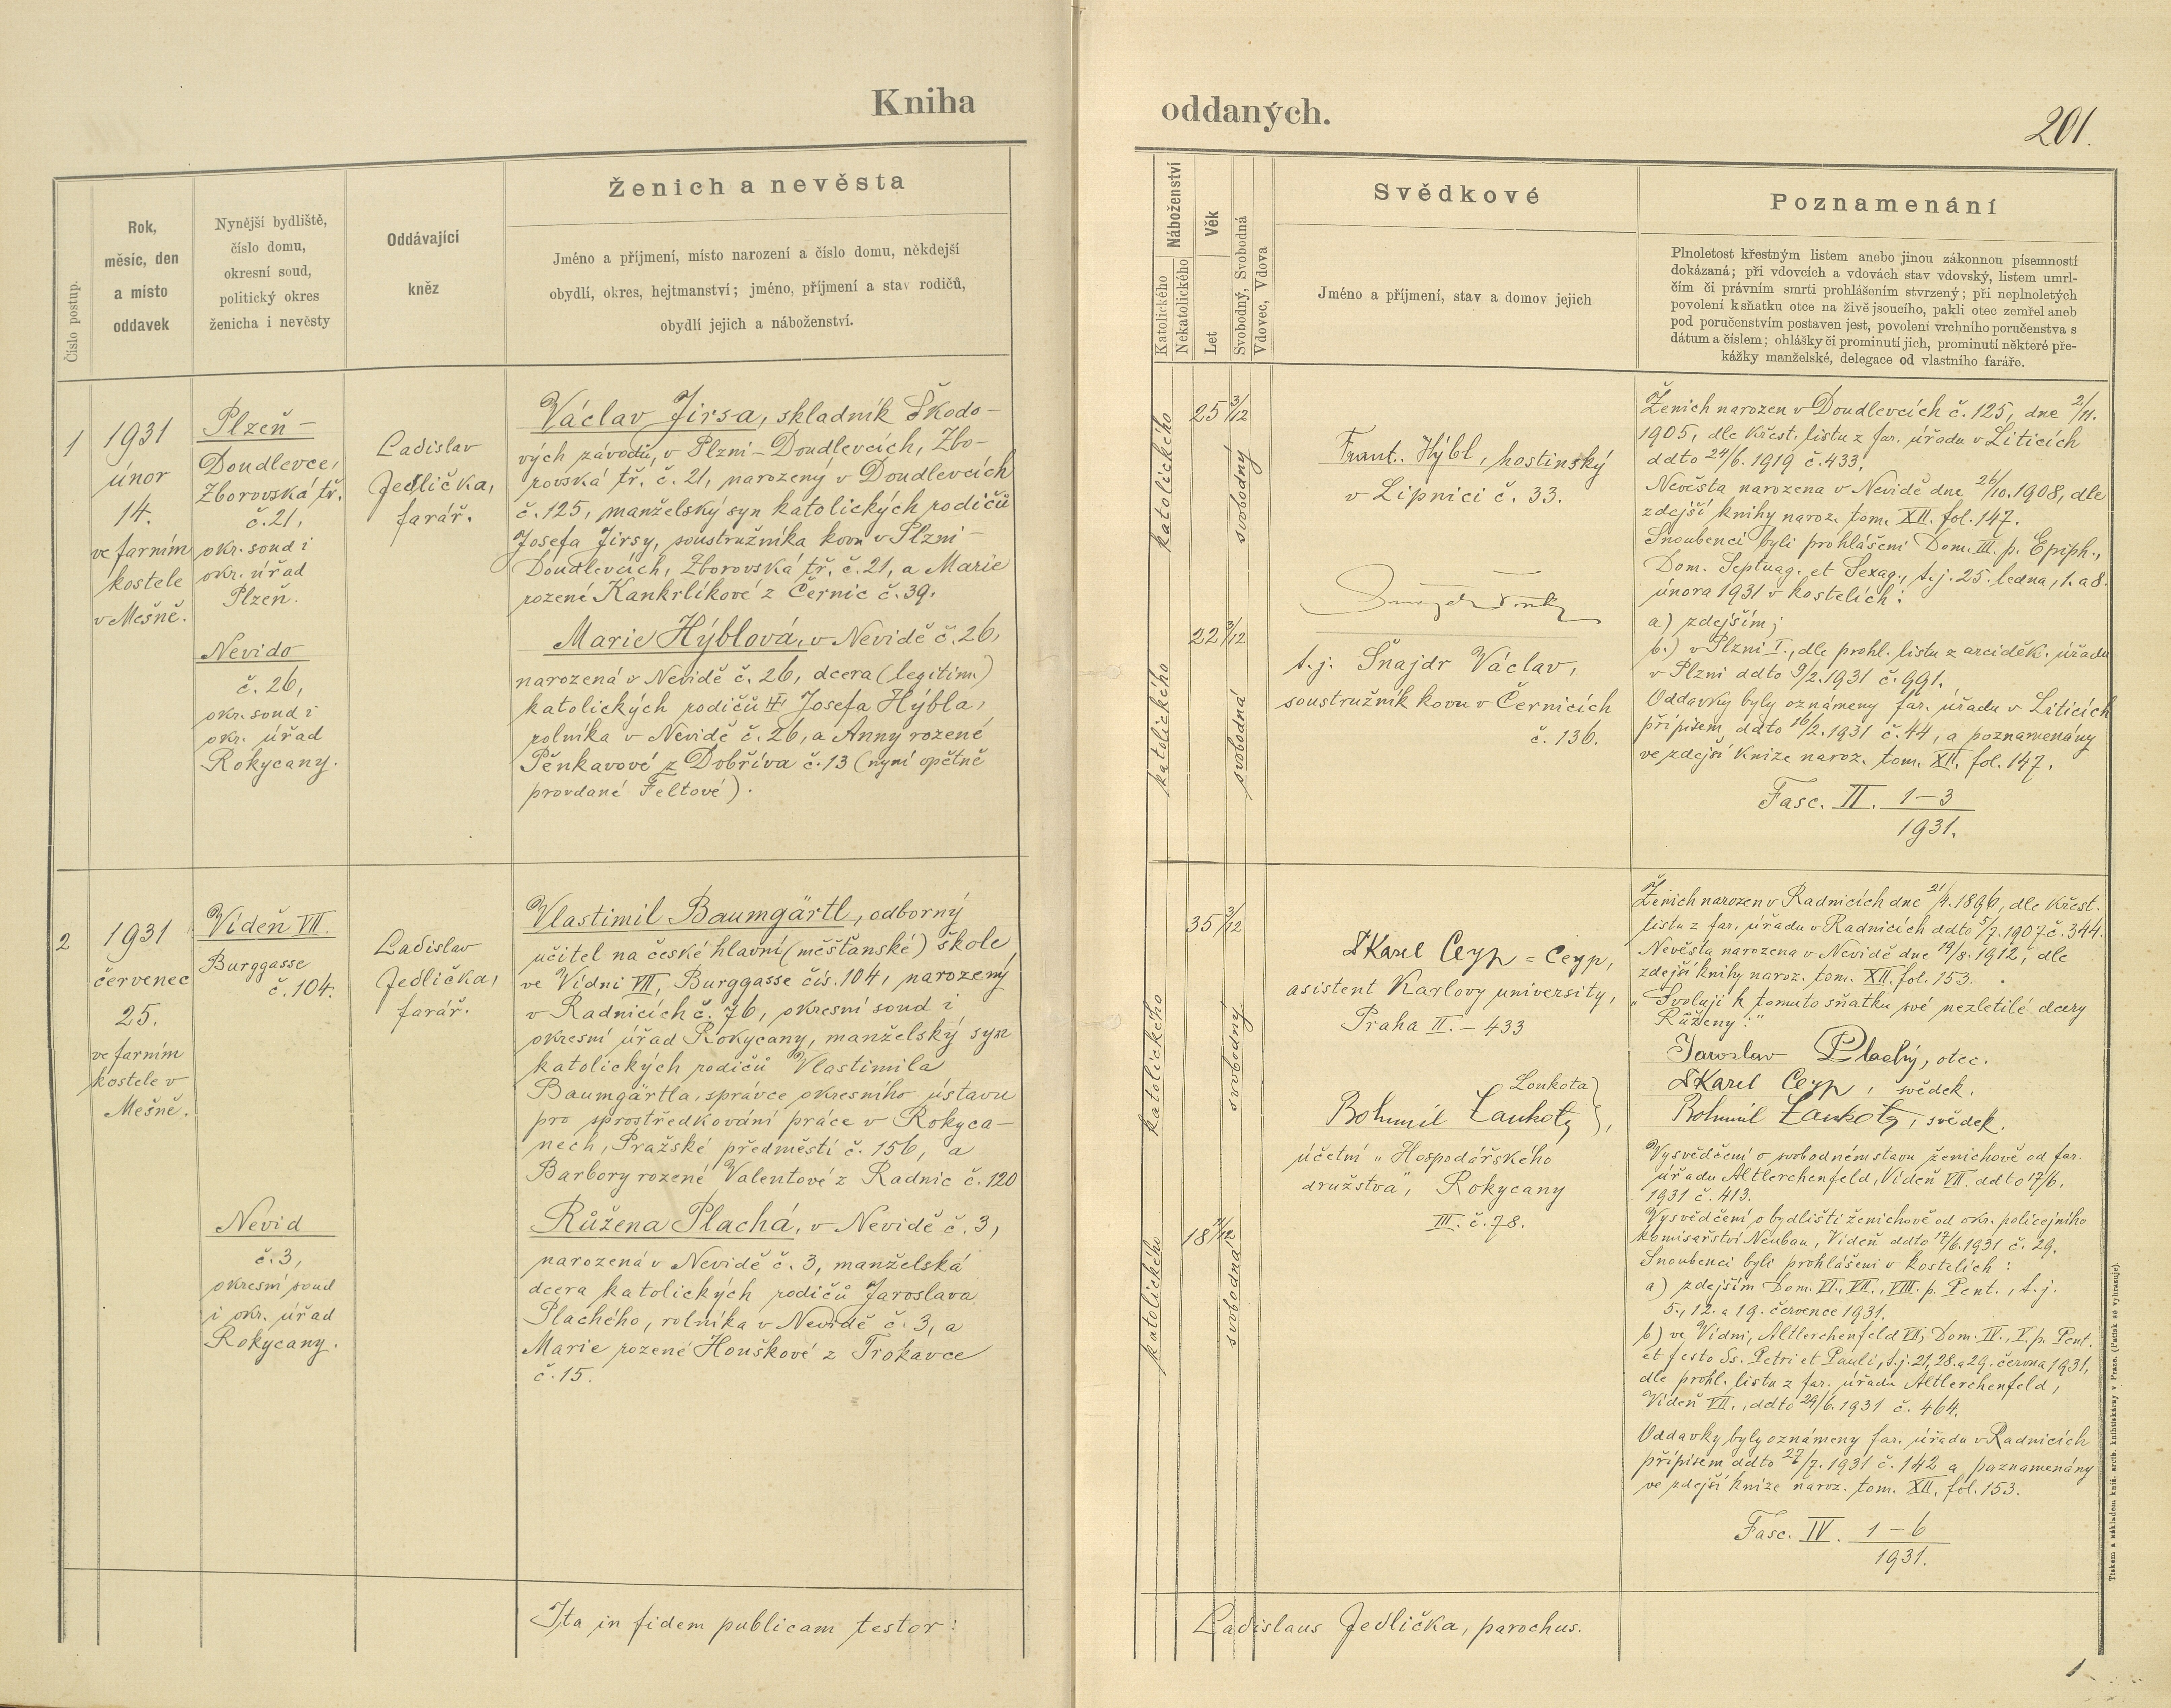 Kniha
oddaných.
201.
Číslo postup.
Rok,
měsíc, den
a místo
oddavek
Nynější bydliště,
číslo domu,
okresní soud,
politický okres
ženicha i nevěsty
Oddávající
kněz
Ženich a nevěsta
Jméno a příjmení, místo narození a číslo domu, někdejší
obydlí, okres, hejtmanství; jméno, příjmení a stav rodičů,
obydlí jejich a náboženství.
Náboženství
Katolického
Nekatolického
Věk
Let
Svobodný, Svobodná
Vdovec, Vdova
Svědkové
Jméno a příjmení, stav a domov jejich
Poznamenání
Plnoletost křestným listem anebo jinou zákonnou písemností
dokázaná; při vdovcích a vdovách stav vdovský, listem umrl-
čím či právním smrti prohlášením stvrzený; při neplnoletých
povolení k sňatku otce na živě jsoucího, pakli otec zemřel aneb
pod poručenstvím postaven jest, povolení vrchního poručenstva s
dátum a číslem; ohlášky či prominutí jich, prominutí některé pře-
kážky manželské, delegace od vlastního faráře.
1
1931
únor
14.
ve farním
kostele
v Mešně.
Plzeň –
Doudlevce,
Zborovská tř.
č. 21,
okr. soud i
okr. úřad
Plzeň.
Nevido
č. 26,
okr. soud i
okr. úřad
Rokycany.
Ladislav
Jedlička,
farář.
Václav Jirsa, skladník Škodo-
vých závodů, v Plzni – Doudlevcích, Zbo-
rovská tř. č. 21, narozený v Doudlevcích
č. 125, manželský syn katolických rodičů
Josefa Jirsy, soustružníka kovu v Plzni –
Doudlevcích, Zborovská tř. č. 21, a Marie
rozené Kankrlíkové z Černic č. 39.
Marie Hýblová, v Nevidě č. 26,
narozená v Nevidě č. 26, dcera (legitim.)
katolických rodičů Josefa Hýbla,
rolníka v Nevidě č. 26, a Anny rozené
Pěnkavové z Dobříva č. 13 (nyní opětně
provdané Feltové).
katolického
25 3/12
svobodný
katolického
22 3/12
svobodná
Frant. Hýbl, hostinský
v Lipnici č. 33.
t. j. Šnajdr Václav,
soustružník kovu v Černicích
č. 136.
Ženich narozen v Doudlevcích č. 125, dne 2/11.
1905, dle křest. listu z far. úřadu v Liticích
ddto 24/6. 1919 č. 433.
Nevěsta narozena v Nevidě dne 26/10. 1908, dle
zdejší knihy naroz. tom. XII. fol. 147.
Snoubenci byli prohlášeni Dom. III. p. Epiph.,
Dom. Septuag. et Sexag., t. j. 25. ledna, 1. a 8.
února 1931 v kostelích:
a) zdejším;
b.) v Plzni I., dle prohl. listu z arciděk. úřadu
v Plzni ddto 9/2. 1931 č. 991.
Oddavky byly oznámeny far. úřadu v Liticích
přípisem ddto 16/2. 1931 č. 44, a poznamenány
ve zdejší knize naroz. tom. XII. fol. 147.
Fasc. II. 1–3
1931.
2
1931
červenec
25.
ve farním
kostele v
Mešně.
Vídeň VII.
Burggasse
č. 104.
Nevid
č. 3,
okresní soud
i okr. úřad
Rokycany.
Ladislav
Jedlička,
farář.
Vlastimil Baumgärtl, odborný
učitel na české hlavní (měšťanské) škole
ve Vídni VII, Burggasse čís. 104, narozený
v Radnicích č. 76, okresní soud i
okresní úřad Rokycany, manželský syn
katolických rodičů Vlastimila
Baumgärtla, správce okresního ústavu
pro sprostředkování práce v Rokyca-
nech, Pražské předměstí č. 156, a
Barbory rozené Valentové z Radnic č. 120
Růžena Plachá, v Nevidě č. 3,
narozená v Nevidě č. 3, manželská
dcera katolických rodičů Jaroslava
Plachého, rolníka v Nevidě č. 3, a
Marie rozené Houškové z Trokavce
č. 15.
katolického
35 3/12
svobodný
katolického
18 11/12
svobodná
Karel Ceyp = Ceyp,
asistent Karlovy university,
Praha II. – 433
Loukota
Bohumil Loukota,
účetní „Hospodářského
družstva", Rokycany
III. č. 78.
Ženich narozen v Radnicích dne 21/4. 1896, dle křest.
listu z far. úřadu v Radnicích ddto 5/7. 1907 č. 344.
Nevěsta narozena v Nevidě dne 19/8. 1912, dle
zdejší knihy naroz. tom. XII. fol. 153.
„Svoluji k tomuto sňatku své nezletilé dcery
Růženy:"
Jaroslav Plachý, otec.
Karel Ceyp, svědek.
Bohumil Loukota, svědek.
Vysvědčení o svobodném stavu ženichově od far.
úřadu Altlerchenfeld, Vídeň VII. ddto 17/6.
1931 č. 413.
Vysvědčení o bydlišti ženichově od okr. policejního
komisařství Neubau, Vídeň ddto 17/6. 1931 č. 29.
Snoubenci byli prohlášeni v kostelích:
a) zdejším Dom. VI., VII., VIII. p. Pent., t. j.
5., 12. a 19. července 1931.
b) ve Vídni, Altlerchenfeld VII, Dom. IV., V. p. Pent.
et festo Ss. Petri et Pauli, t. j. 21., 28. a 29. června 1931,
dle prohl. listu z far. úřadu Altlerchenfeld,
Vídeň VII., ddto 29/6. 1931 č. 464.
Oddavky byly oznámeny far. úřadu v Radnicích
přípisem ddto 27/7. 1931 č. 142 a poznamenány
ve zdejší knize naroz. tom. XII. fol. 153.
Fasc. IV. 1–6
1931.
Ita in fidem publicam testor:
Ladislaus Jedlička, parochus.
Tiskem a nákladem kníž. arcib. knihtiskárny v Praze. (Patisk se vyhrazuje).
1